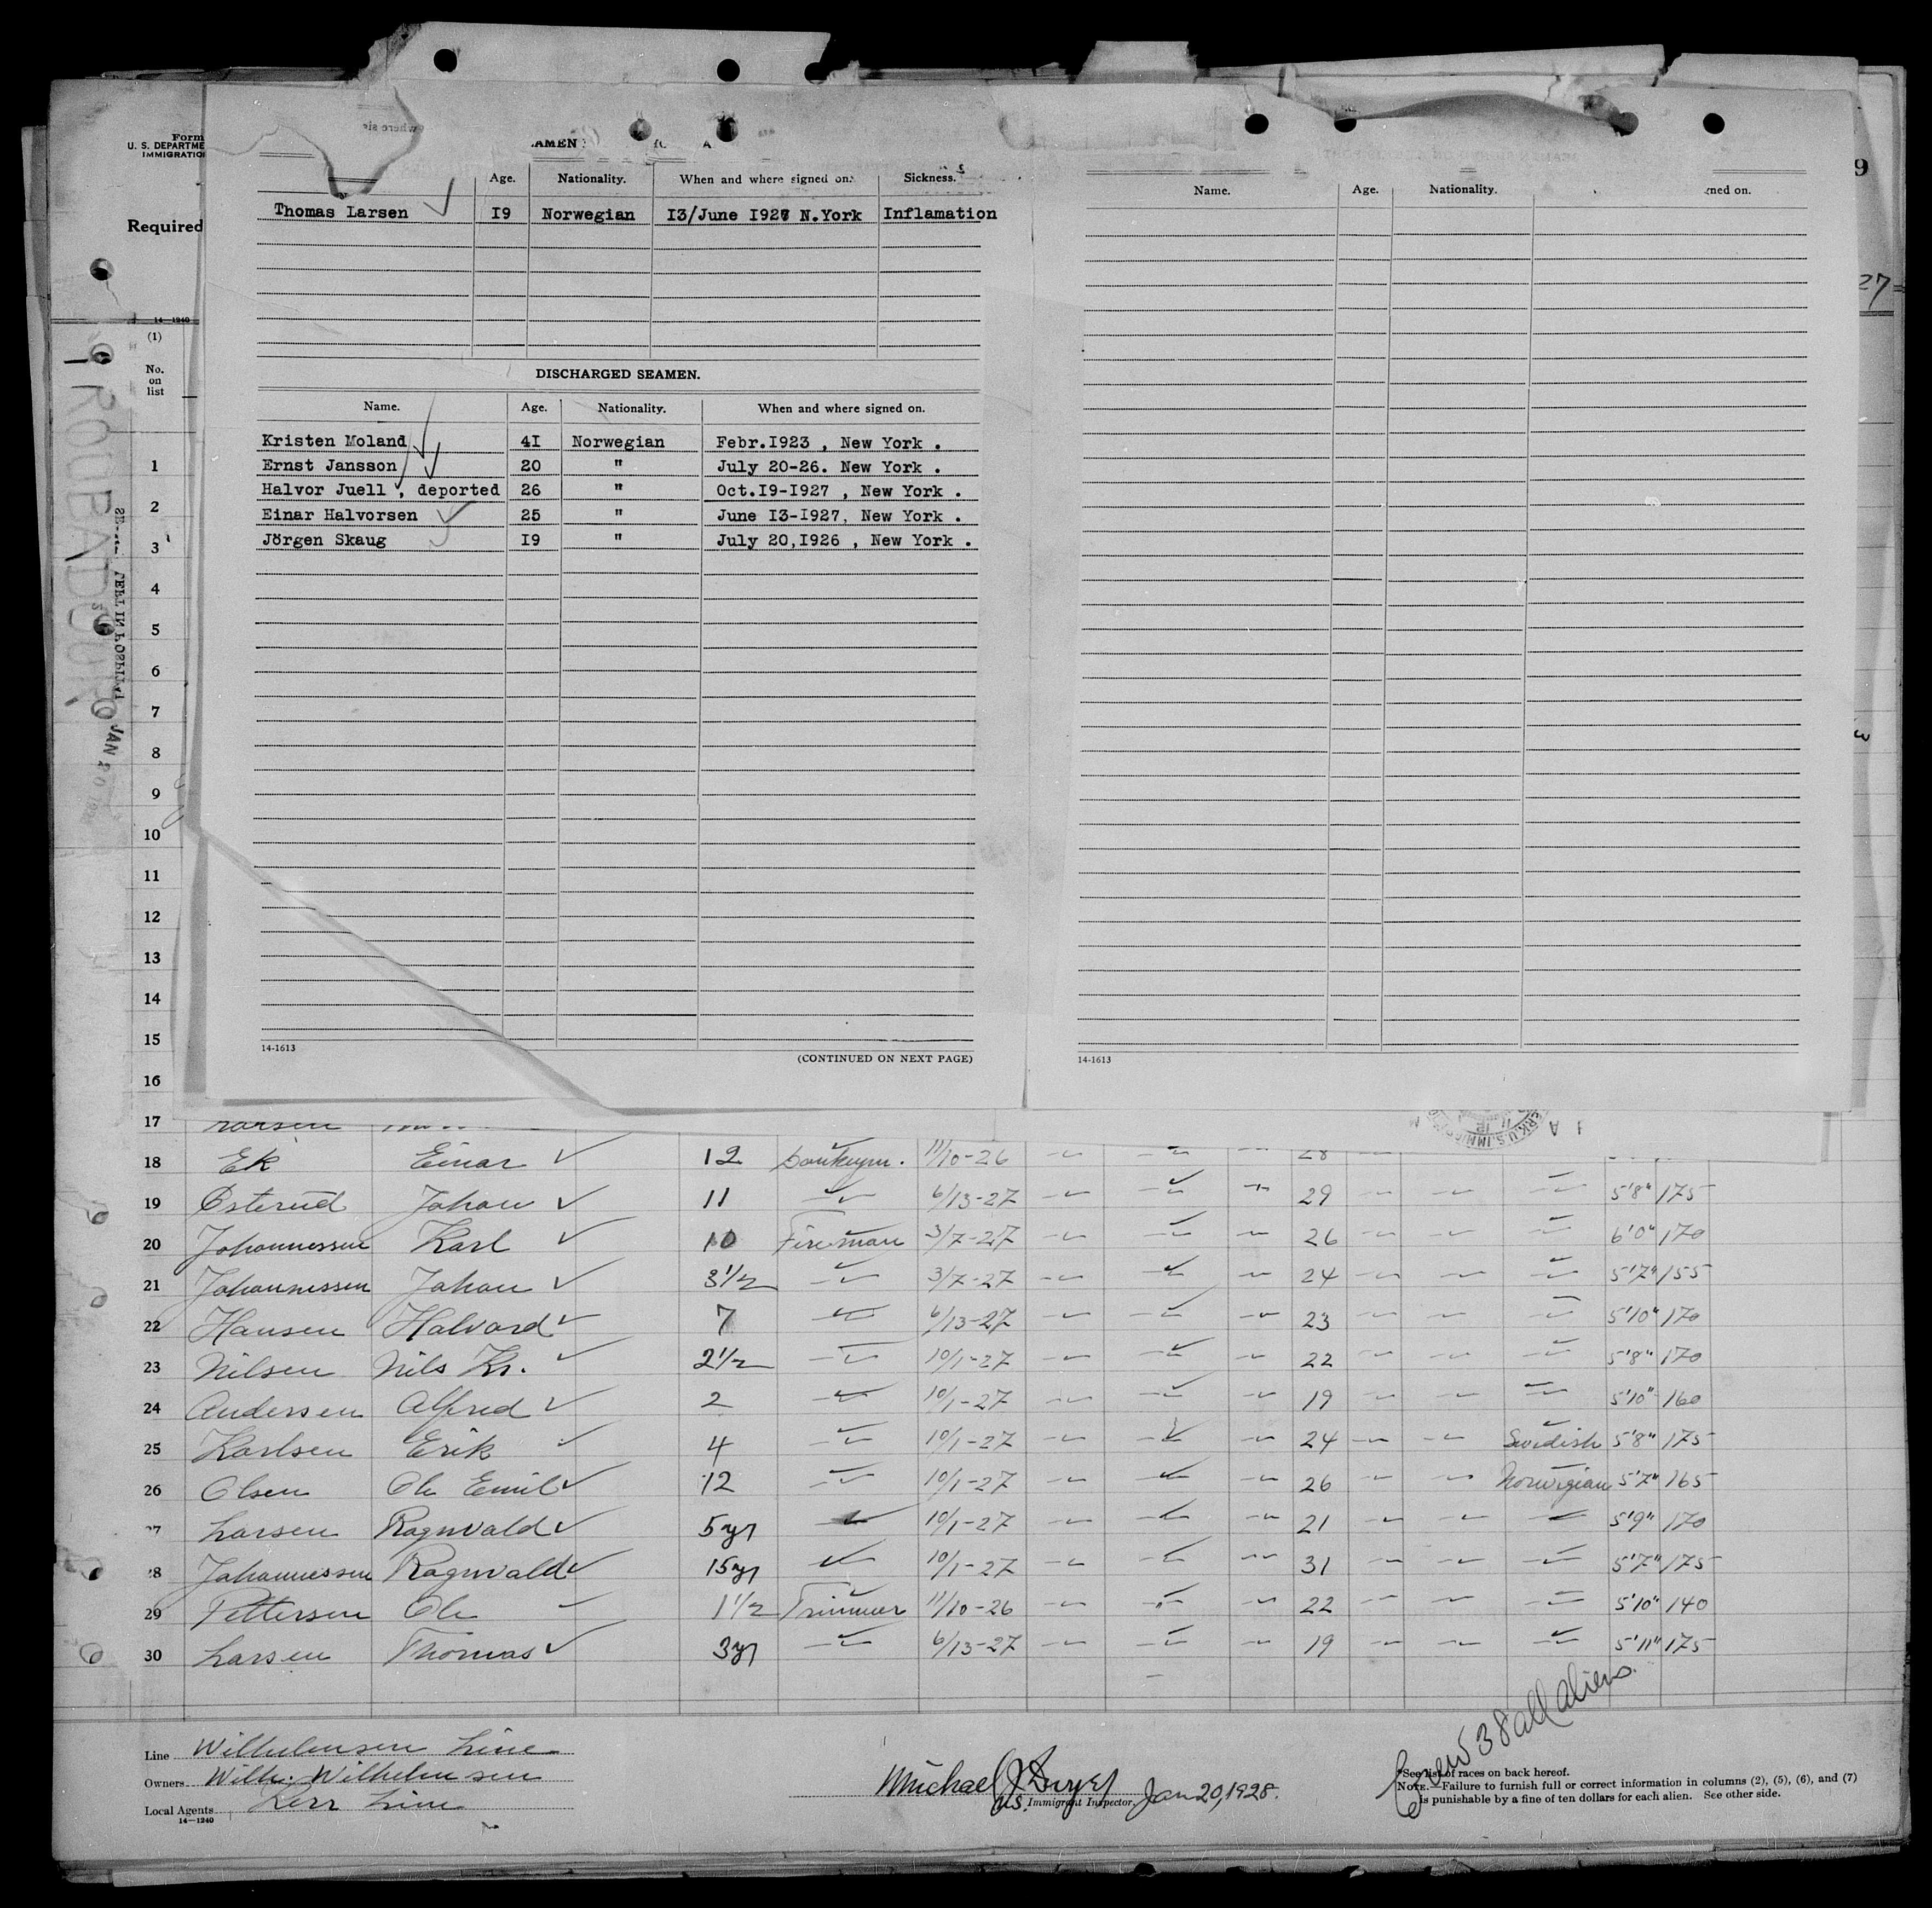 Form
U. S. DEPARTME
IMMIGRATIO
Required
14—1240
(1)
No.
on
list
TROUBADOUR
JAN 20
AMEN
Age. Nationality. When and where signed on. Sickness.
Thomas Larsen 19 Norwegian 13/June 1927 N.York Inflamation
DISCHARGED SEAMEN.
Name. Age. Nationality. When and where signed on.
Kristen Moland 41 Norwegian Febr.1923 , New York .
Ernst Jansson 20 " July 20-26. New York .
Halvor Juell , deported 26 " Oct.19-1927 , New York .
Einar Halvorsen 25 " June 13-1927, New York .
Jörgen Skaug 19 " July 20,1926 , New York .
14-1613 (CONTINUED ON NEXT PAGE)
Name. Age. Nationality. ned on.
14-1613
9
27
3
1
2
3
4
5
6
7
8
9
10
11
12
13
14
15
16
17 Larsen
18 Ek Einar 12 Donkeym. 11/10-26 28
19 Osterud Johan 11 6/13-27 29 5'8" 175
20 Johannessen Karl 10 Fireman 3/7-27 26 6'0" 170
21 Johannessen Johan 3 1/2 3/7-27 24 5'7" 155
22 Hansen Halvard 7 6/13-27 23 5'10" 170
23 Nilsen Nils Kr. 2 1/2 10/1-27 22 5'8" 170
24 Andersen Alfred 2 10/1-27 19 5'10" 160
25 Karlsen Erik 4 10/1-27 24 Swedish 5'8" 175
26 Olsen Ole Emil 12 10/1-27 26 Norwegian 5'7" 165
27 Larsen Ragnvald 5 yr 10/1-27 21 5'9" 170
28 Johannessen Ragnvald 15 yr 10/1-27 31 5'7" 175
29 Pettersen Ole 1 1/2 Trimmer 11/10-26 22 5'10" 140
30 Larsen Thomas 3 yr 6/13-27 19 5'11" 175
Crew 38 all aliens.
Line Wilhelmsen Line
Owners Wilh. Wilhelmsen
Local Agents Kerr Line
14—1240
Michael J Dwyer Jan 20, 1928.
U.S. Immigrant Inspector.
*See list of races on back hereof.
NOTE.—Failure to furnish full or correct information in columns (2), (5), (6), and (7)
is punishable by a fine of ten dollars for each alien. See other side.